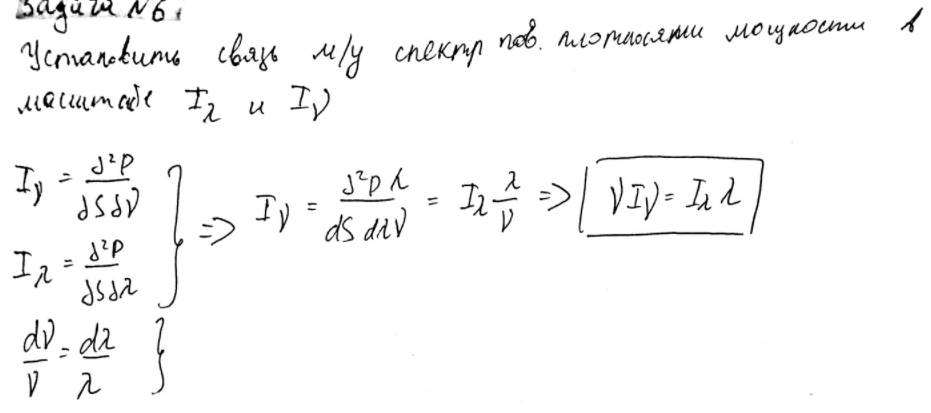 Задача №6.
Установить связь м/у спектр пов. плотностями мощности в
масштабе I_λ и I_ν
I_ν = d²P / dS dν
I_λ = d²P / dS dλ
dν / ν = dλ / λ
⇒ I_ν = d²P λ / dS dλ ν = I_λ λ / ν ⇒ ν I_ν = I_λ λ